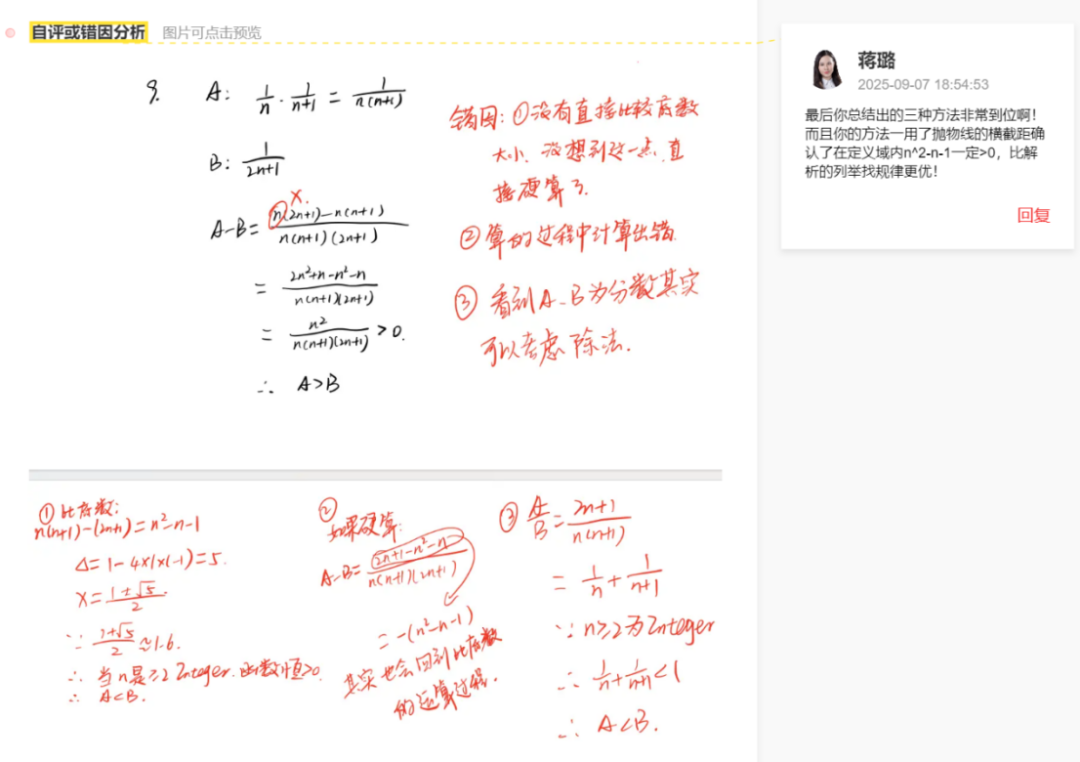 自评或错因分析 图片可点击预览
9. A: 1/n · 1/(n+1) = 1/(n(n+1))
B: 1/(2n+1)
×.
A-B= (n(2n+1)-n(n+1))/(n(n+1)(2n+1))
= (2n²+n-n²-n)/(n(n+1)(2n+1))
= n²/(n(n+1)(2n+1)) >0.
∴ A>B
错因:①没有直接比较底数
大小、没想到这一点,直
接硬算了.
②算的过程中计算出错.
③看到A-B为分数其实
可以考虑除法.
①比底数:
n(n+1)-(2n+1)=n²-n-1
Δ=1-4×1×(-1)=5.
X=(1±√5)/2.
∵ (1+√5)/2 ≈1.6.
∴ 当n是≥2 Integer.函数恒>0.
∴ A<B.
②
如果硬算:
A-B= (2n+1-n²-n)/(n(n+1)(2n+1))
=-(n²-n-1)
其实也会回到比底数
的运算过程.
③ A/B = (2n+1)/(n(n+1))
= 1/n + 1/(n+1)
∵ n≥2为Integer
∴ 1/n + 1/(n+1) <1
∴ A<B.
蒋璐
2025-09-07 18:54:53
最后你总结出的三种方法非常到位啊!
而且你的方法一用了抛物线的横截距确
认了在定义域内n^2-n-1一定>0,比解
析的列举找规律更优!
回复